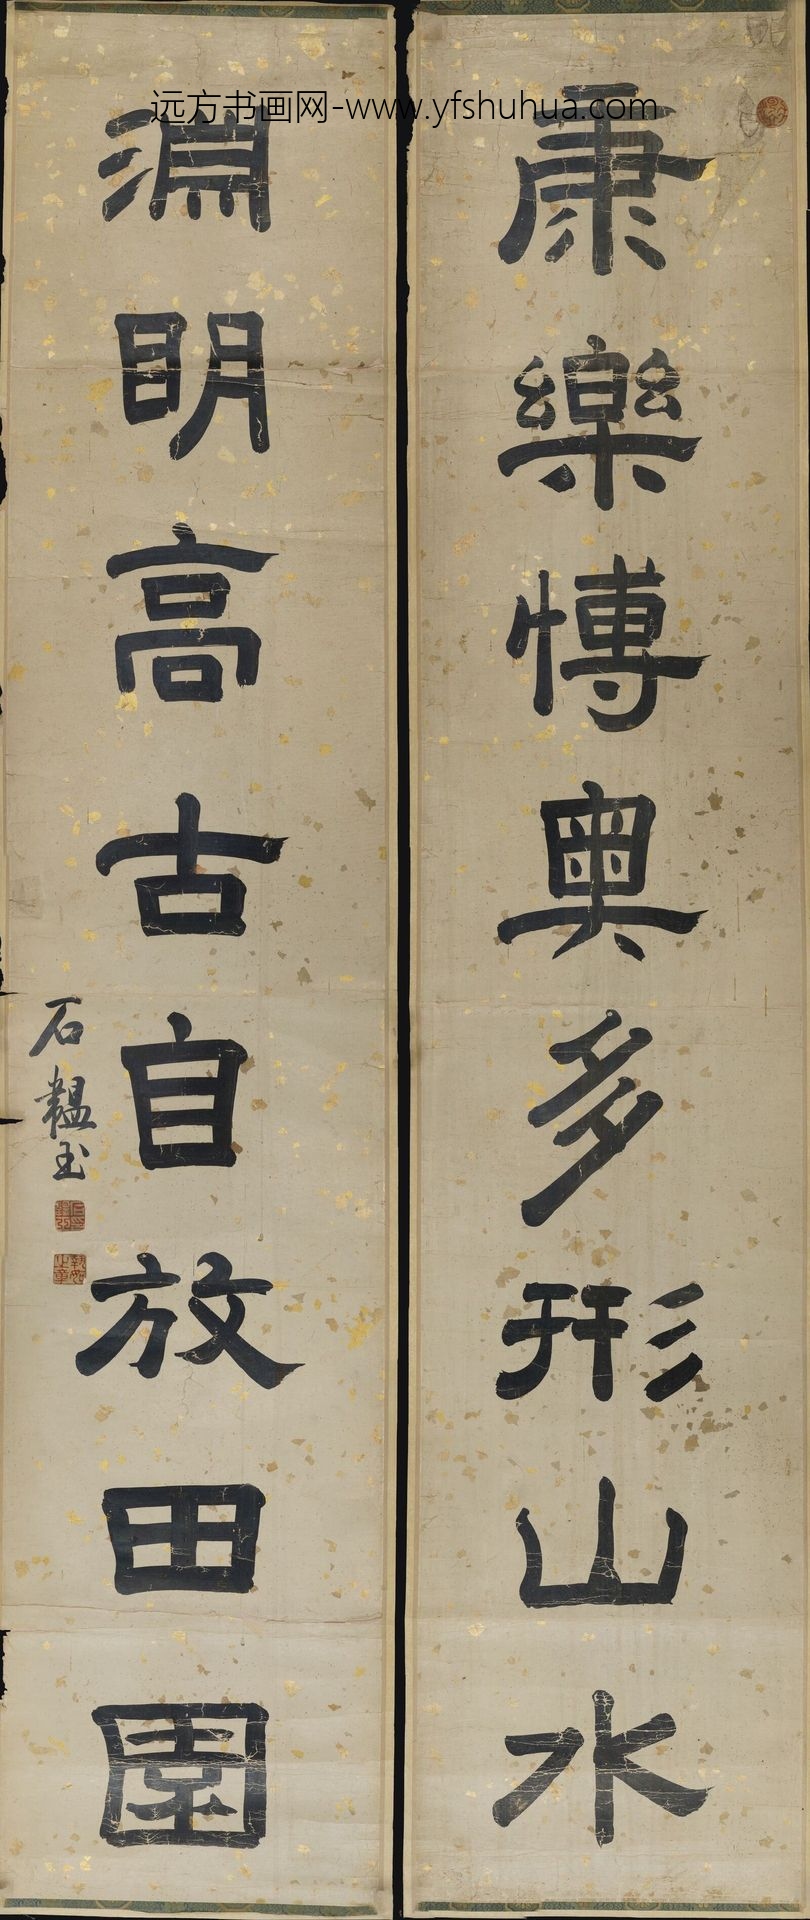 远方书画网-www.yfshuhua.com
康樂博奧多形山水
淵明高古自放田園
石韞玉